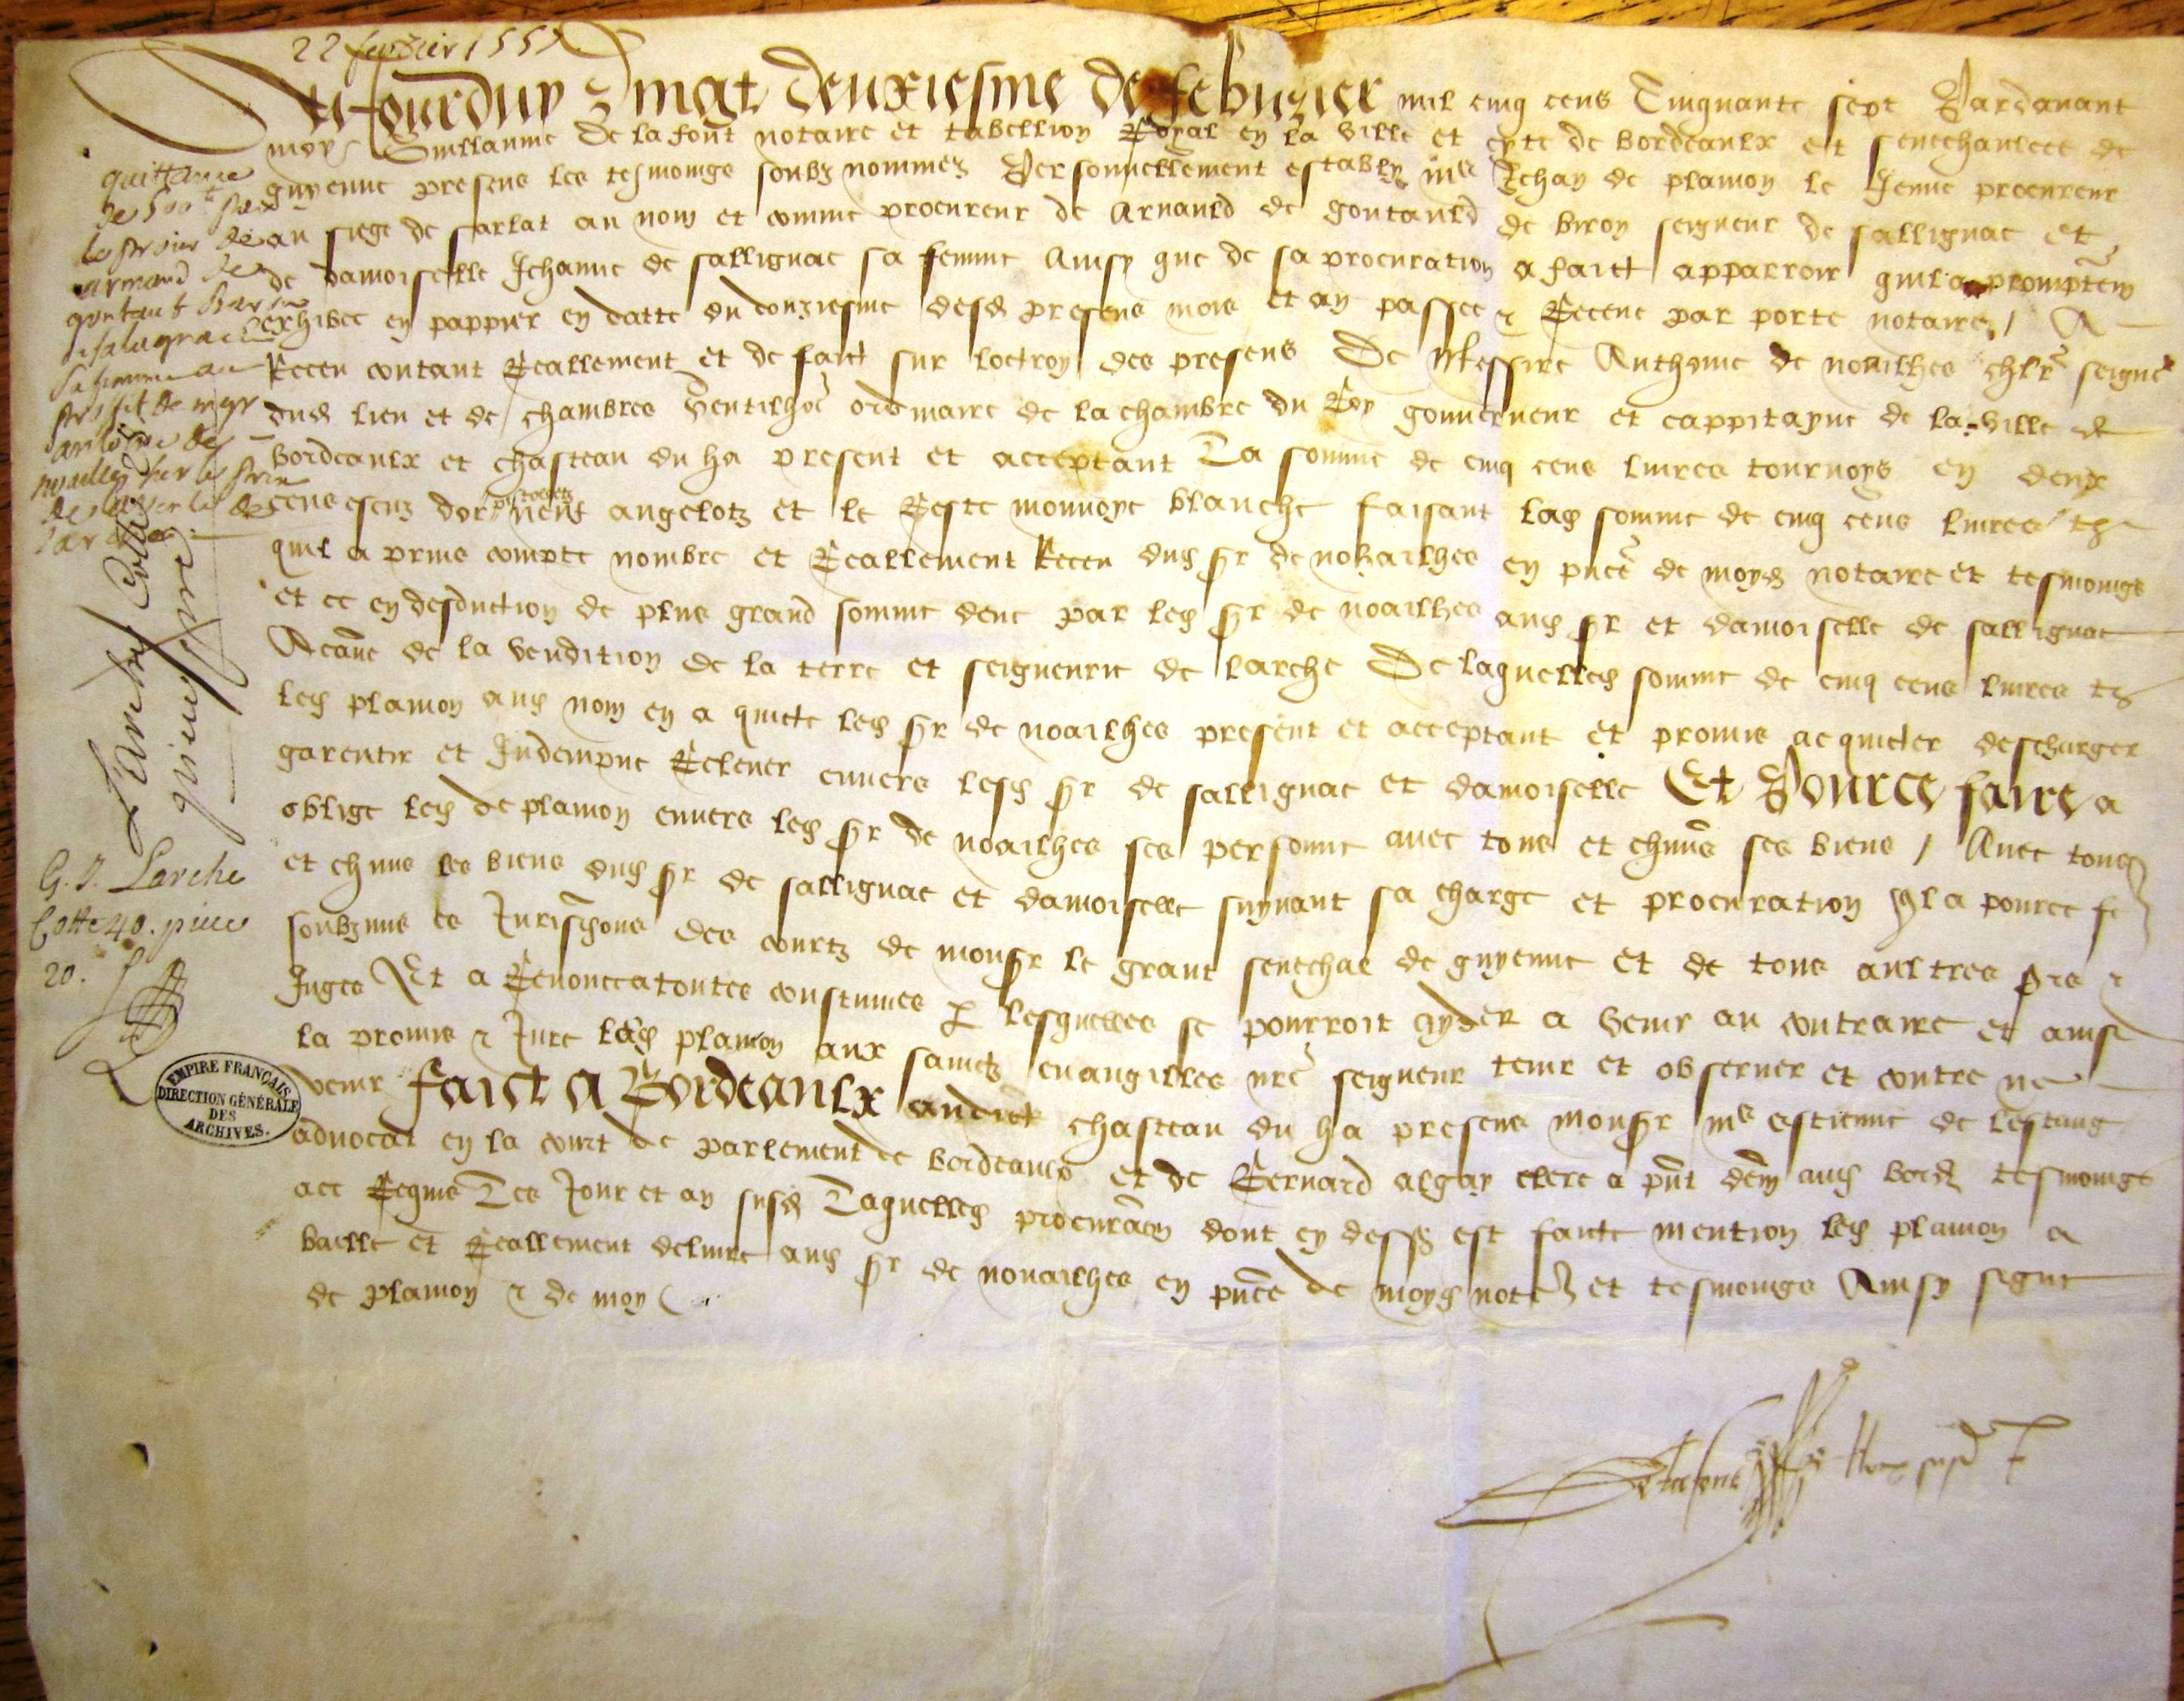 22 febvrier 1557
Aujourduy vingt deuxiesme de febvrier mil cinq cens Cinquante sept Pardavant
moy Guillaume de lafont notaire et tabellion Royal en la ville et cyte de bordeaulx et senechaulcee de
guyenne presens les tesmoings soubz nommez Personnellement estably me Jehan de plamon le Jeune procureur
au siege de sarlat au nom et comme procureur de Arnauld de gontauld de biron seigneur de sallignac et
de damoiselle Jehanne de sallignac sa femme Ainsy que de sa procuration a faict apparroir quil a promptem
exhibee en pappier en datte du douziesme desd presens mois et an passee & Receue par porte notaire / A
Receu contant Reallement et de faict sur loctroy des presens De Messire Anthoine de noailhes chlr seigne
dud lieu et de chambres Gentilhoe ordinaire de la chambre du Roy gouverneur et cappitayne de la ville de
bordeaulx et chasteau du ha present et acceptant La somme de cinq cens livres tournoys en deux
cens escuz dor pistolletz neuf angelotz et le Reste monnoye blanche faisant lad somme de cinq cens livres tz
quil a prins compte nombre et Reallement Receu dud sr de nohailhes en pnce de moyd notaire et tesmoings
et ce en desduction de plus grand somme deue par led sr de noailhes aud sr et damoiselle de sallignac
A cause de la vendition de la terre et seigneurie de larche De laquelled somme de cinq cens livres tz
led plamon aud nom en a quicte led sr de noailhes present et acceptant et promis acquicter descharger
garentir et Indempne Relever envers lesd sr de sallignac et damoiselle Et Pource faire a
oblige led de plamon envers led sr de noailhes ses personne avec tous et chuns ses biens / Avec tous
et chuns les biens dud sr de sallignac et damoiselle suyvant sa charge et procuration Qil a pource se
soubzmis es Jurisdions des courtz de monsr le grant senechal de guyenne et de tous aultres srs &
Juges Et a Renonce a toutes coustumes p lesquelles se pourroit ayder a venir au contraire et ainsi
la promis & Jure led plamon aux sainctz euangilles nre seigneur tenir et observer et contre ne
venir faict a Bordeaulx audict chasteau du ha presens monsr me estienne de lestang
advocat en la court de parlement de bordeaulx et de Bernard algay clerc a pnt dem aud bord tesmoings
ace Requis Les Jour et an susd Laquelled procuraon dont en dessus est faicte mention led plamon a
baille et Reallement delivre aud sr de nouailhes en pnce de moyd note et tesmoings Ainsy signe
de plamon & de moy
Delafont note susd
quittance
de 500 par
le sieur de
armand de
gontaut Baron
de salagnac
sa femme au
profit de mgr
antoine de
noailles sur le prix
de la terre de
Larche
Larche Cotte
quinze pre
G. I. Larche
Cotte 40. piece
20.
EMPIRE FRANÇAIS
DIRECTION GÉNÉRALE
DES
ARCHIVES.